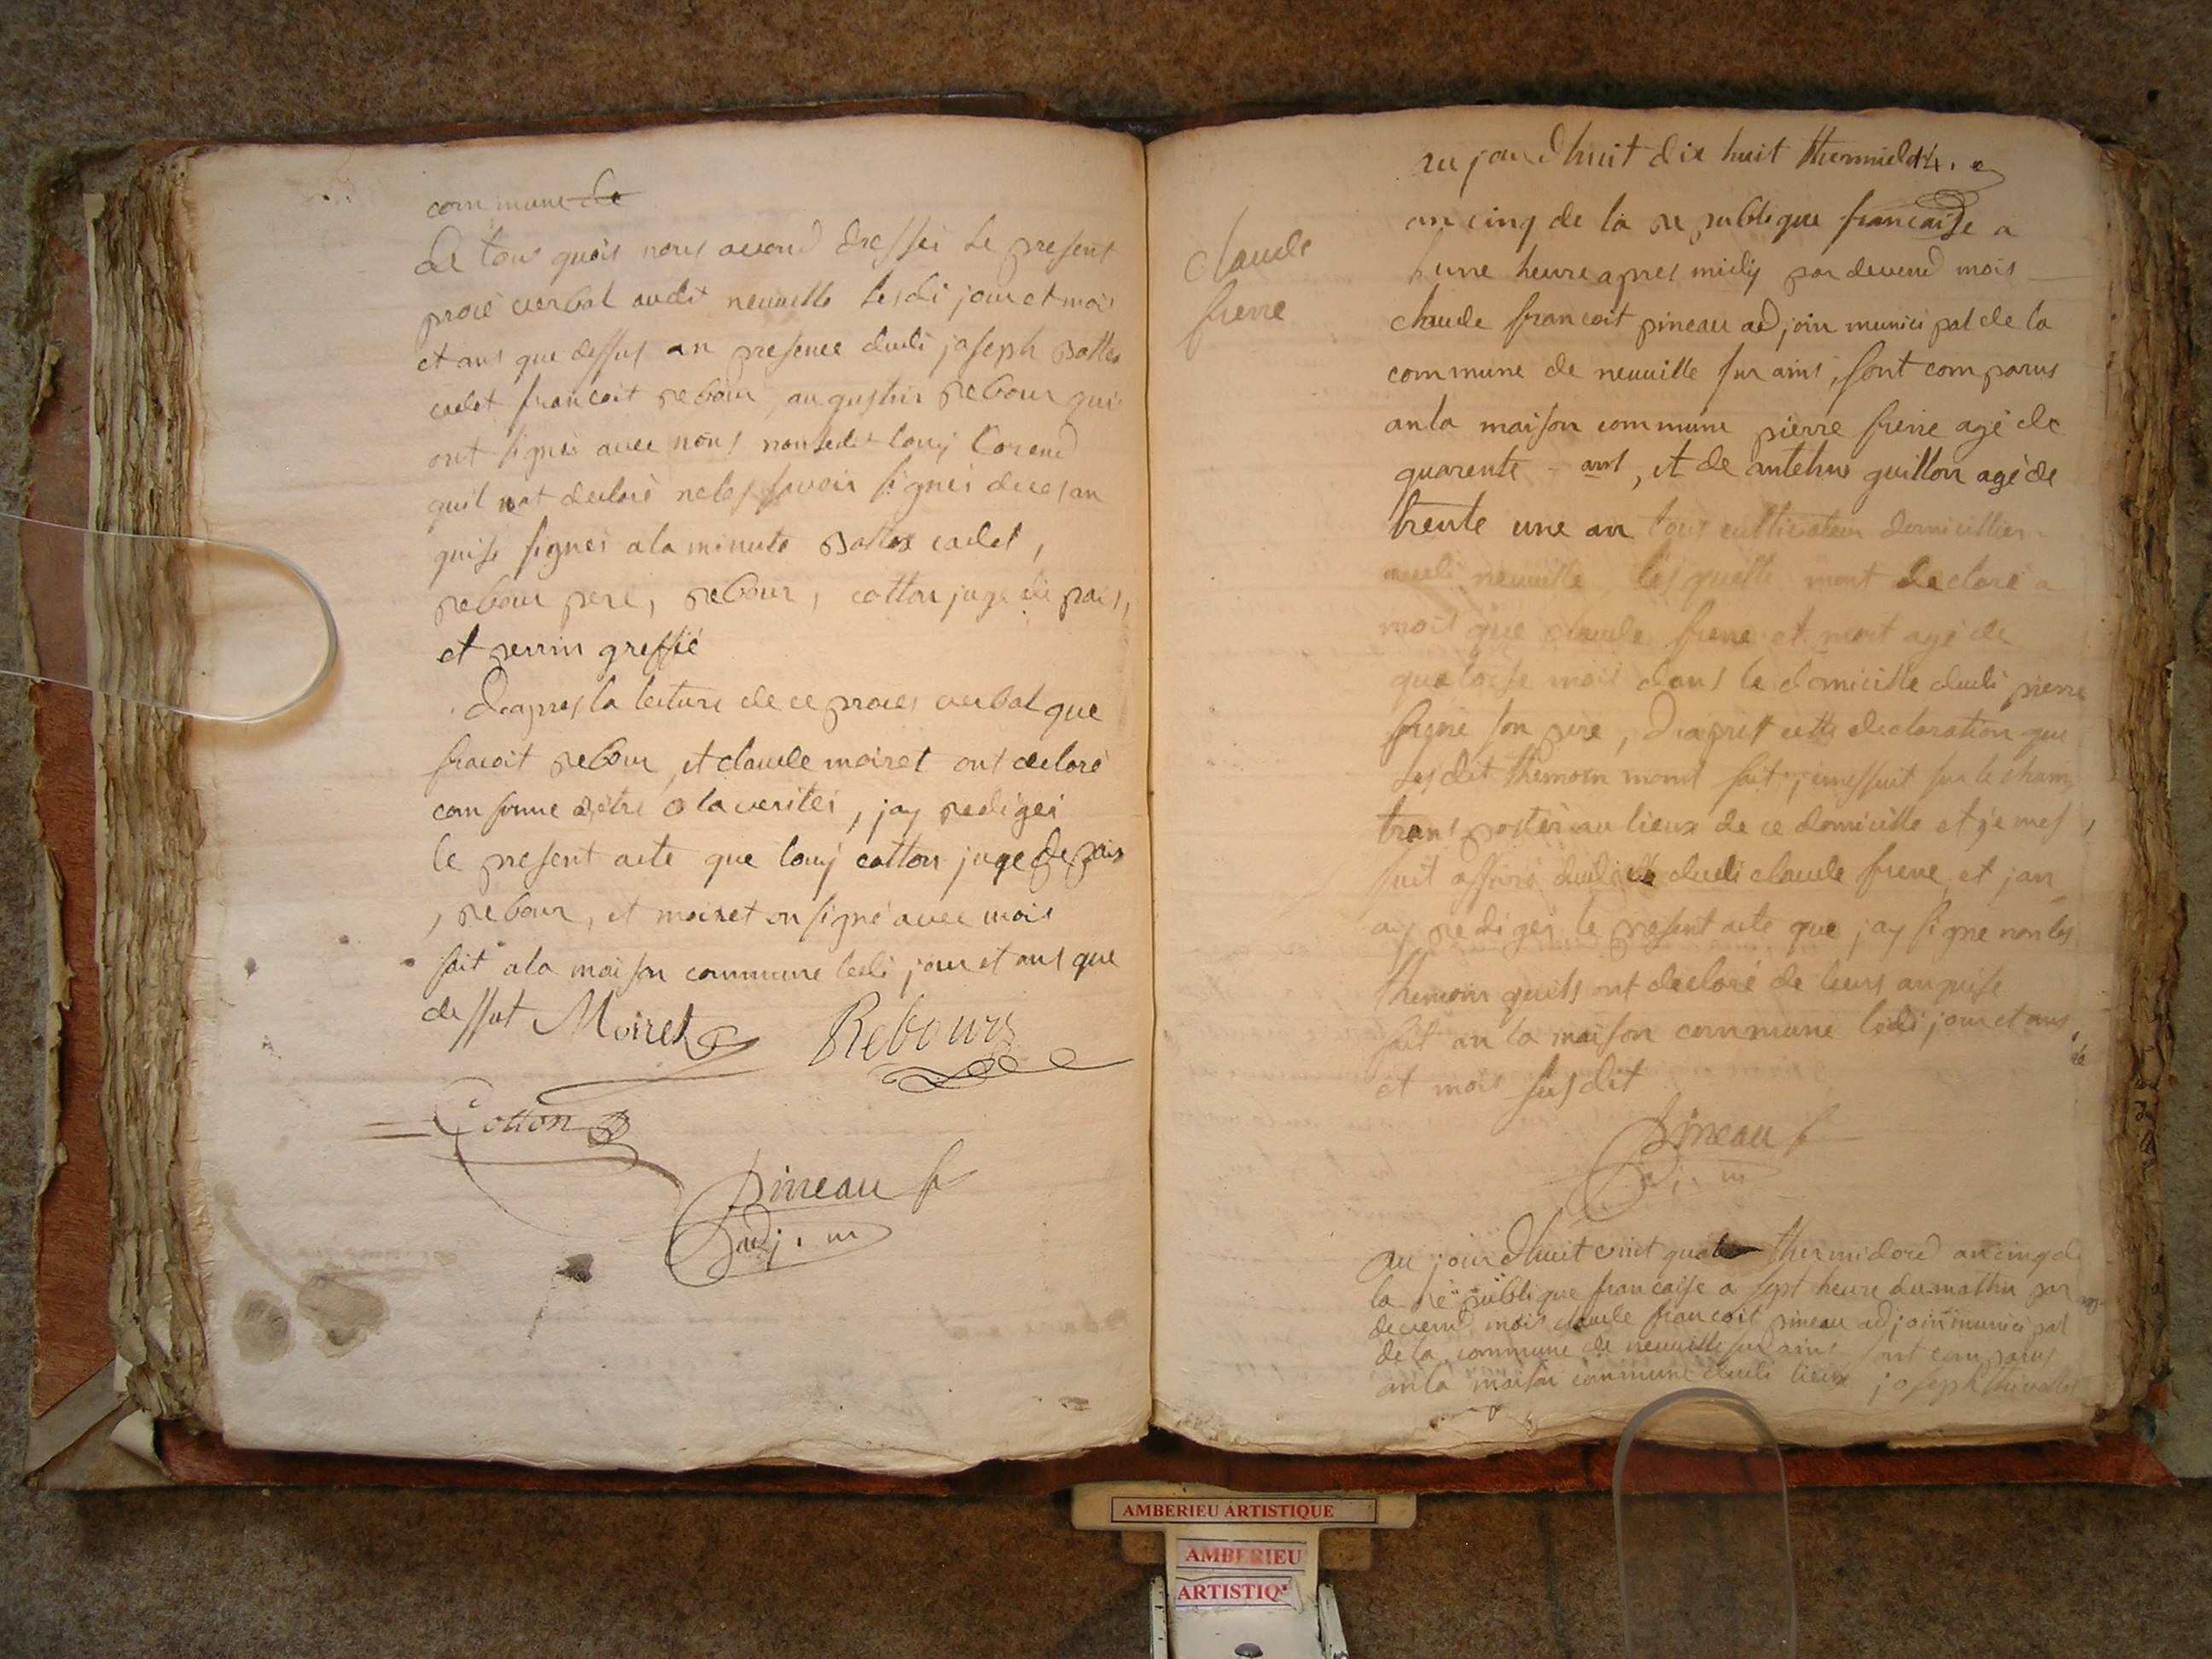 commune de
De tous quois nous avond dressei Le present
proié verbal audit neuville Lesdi jour et mois
et ans que dessus an presence dudi joseph
cadet francoit rebour, augustin Rebour qui
ont signié avec nous non ledit louij Corend
quil nat declaré ne les savoir signiés deces an
quise signéi a la minute cadet,
rebour pere, rebour, cotton juge de pais,
et perrin greffié
Deapres la lecture de ce proces verbal que
fracoit rebour, et claude moiret ont declaré
confonne a la veritéi, jay redigéi
le present acte que louij cotton juge de pais
, rebour, et moiret on signé avec mois
fait a la maison commune ledi jour et ans que
dessut Moiret Rebours
Cotton
pineau f
adj. m
au jourdhuit dix huit
claude
frene
an cinq de la republique francaise a
hunne heure apres midij par devend mois
claude francoit pineau adjoin municipal de la
commune de neuville sur ains, sont comparus
an la maison commune pierre frene agé de
quarente ans, et de antelme guillon agé de
trente une an tous cultivateur domicillier
audi neuville lesquelle mont declaré a
mois que claude frene et mort agé de
quatorse mois dans le domicille dudi pierre
frene son pere, Deapret cette declaration que
Lesdit themoin mont fait, jemessuit sur le cham
transportér au lieux de ce domicille et je mes
suit assuré dudi claude frene et jan
aij redigéi le present acte que jay signe non les
themoin quils ont declaré de leurs anquise
fait an la maison commune ledi jour et ans
et mois susdit
pineau f
adj. m
au jourdhuit vint thermidord an cinq de
la republique francaise a sept heure du mathin par
devend mois claude francoit pineau adjoin municipal
de la commune de neuville sur ains sont comparus
an la maison commune dudi lieux joseph
AMBERIEU ARTISTIQUE
AMBERIEU
ARTISTIQ